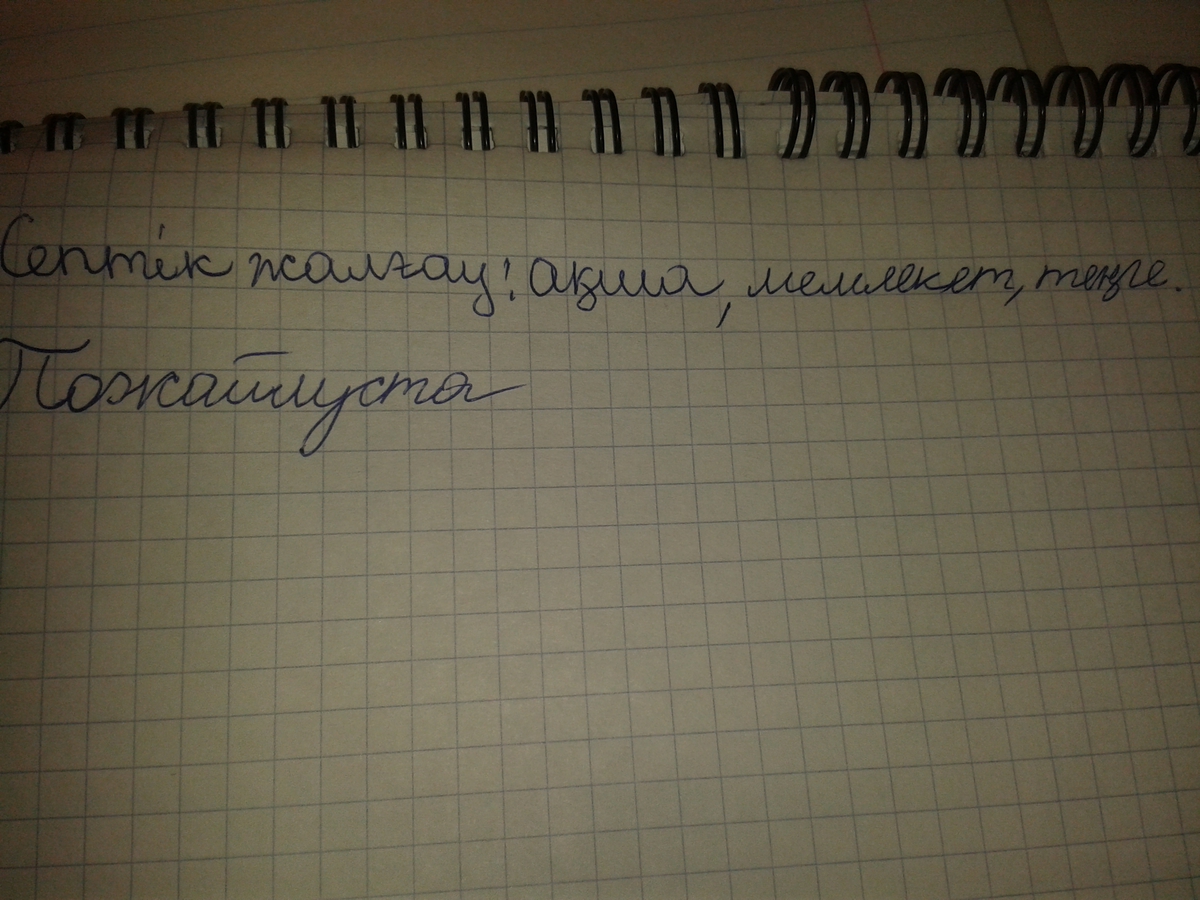 Септік жалғау: ақша, мемлекет, теңге.
Пожайлуста